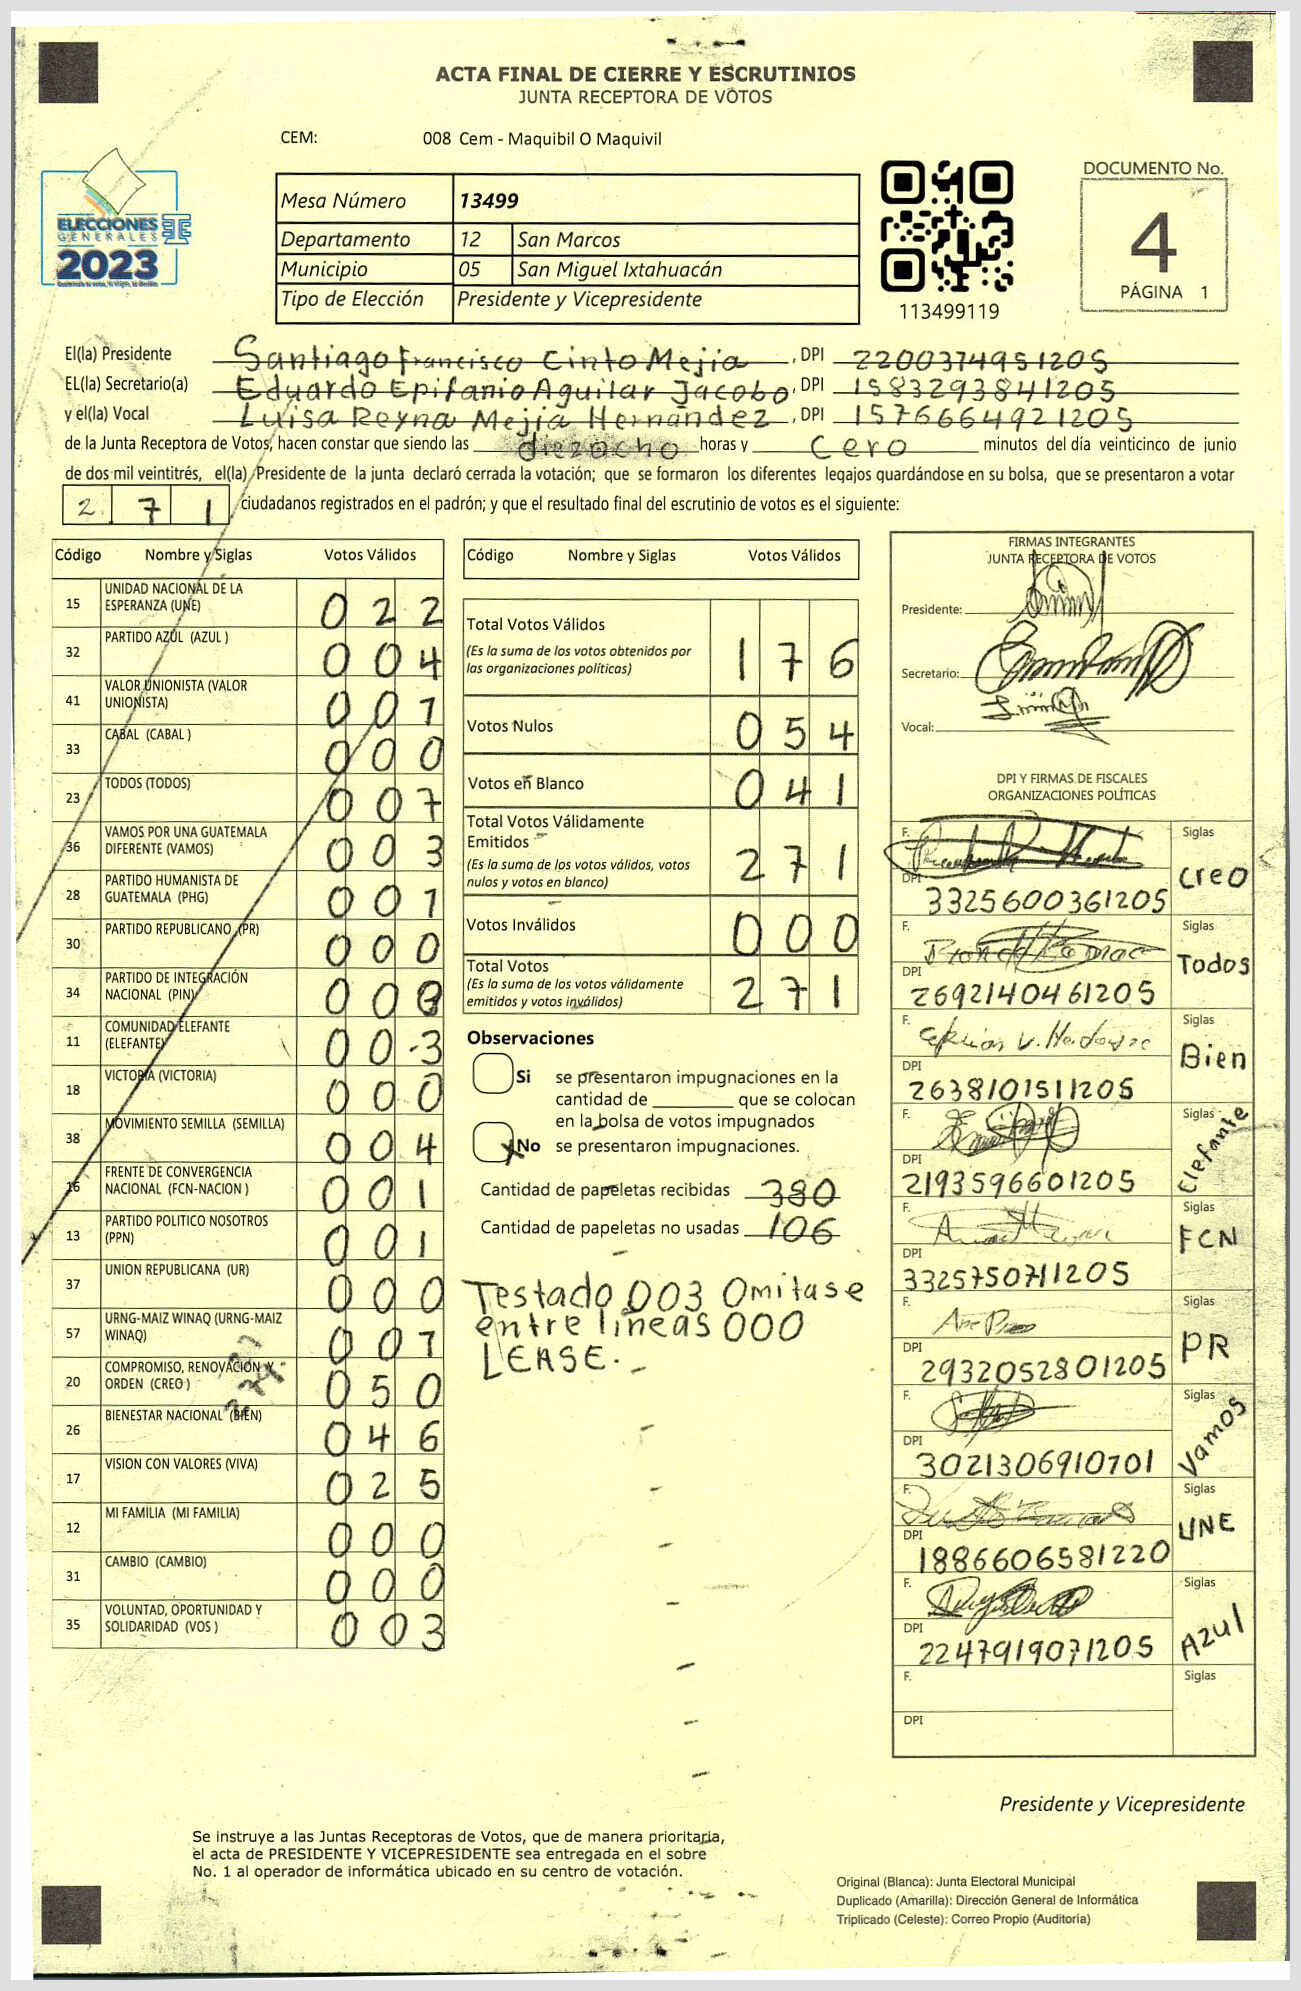 ACTA FINAL DE CIERRE Y ESCRUTINIOS
JUNTA RECEPTORA DE VOTOS
CEM: 008 Cem - Maquibil O Maquivil
ELECCIONES
GENERALES
2023
Mesa Número 13499
Departamento 12 San Marcos
Municipio 05 San Miguel Ixtahuacán
Tipo de Elección Presidente y Vicepresidente
113499119
DOCUMENTO No.
4
PÁGINA 1
El(la) Presidente Santiago Francisco Cinto Mejia, DPI 2200374951205
EL(la) Secretario(a) Eduardo Epifanio Aguilar Jacobo, DPI 1583293841205
y el(la) Vocal Luisa Reyna Mejia Hernández, DPI 1576664921205
de la Junta Receptora de Votos, hacen constar que siendo las dieciocho horas y cero minutos del día veinticinco de junio
de dos mil veintitrés, el(la) Presidente de la junta declaró cerrada la votación; que se formaron los diferentes legajos guardándose en su bolsa, que se presentaron a votar
2 7 1 ciudadanos registrados en el padrón; y que el resultado final del escrutinio de votos es el siguiente:
Código Nombre y Siglas Votos Válidos
15 UNIDAD NACIONAL DE LA
ESPERANZA (UNE) 0 2 2
32 PARTIDO AZUL (AZUL ) 0 0 4
41 VALOR UNIONISTA (VALOR
UNIONISTA) 0 0 1
33 CABAL (CABAL ) 0 0 0
23 TODOS (TODOS) 0 0 7
36 VAMOS POR UNA GUATEMALA
DIFERENTE (VAMOS) 0 0 3
28 PARTIDO HUMANISTA DE
GUATEMALA (PHG) 0 0 1
30 PARTIDO REPUBLICANO (PR) 0 0 0
34 PARTIDO DE INTEGRACIÓN
NACIONAL (PIN) 0 0
11 COMUNIDAD ELEFANTE
(ELEFANTE) 0 0 3
18 VICTORIA (VICTORIA) 0 0 0
38 MOVIMIENTO SEMILLA (SEMILLA) 0 0 4
16 FRENTE DE CONVERGENCIA
NACIONAL (FCN-NACION ) 0 0 1
13 PARTIDO POLITICO NOSOTROS
(PPN) 0 0 1
37 UNION REPUBLICANA (UR) 0 0 0
57 URNG-MAIZ WINAQ (URNG-MAIZ
WINAQ) 0 0 1
20 COMPROMISO, RENOVACIÓN Y
ORDEN (CREO ) 0 5 0
26 BIENESTAR NACIONAL (BIEN) 0 4 6
17 VISION CON VALORES (VIVA) 0 2 5
12 MI FAMILIA (MI FAMILIA) 0 0 0
31 CAMBIO (CAMBIO) 0 0 0
35 VOLUNTAD, OPORTUNIDAD Y
SOLIDARIDAD (VOS ) 0 0 3
Código Nombre y Siglas Votos Válidos
Total Votos Válidos
(Es la suma de los votos obtenidos por
las organizaciones políticas) 1 7 6
Votos Nulos 0 5 4
Votos en Blanco 0 4 1
Total Votos Válidamente
Emitidos
(Es la suma de los votos válidos, votos
nulos y votos en blanco) 2 7 1
Votos Inválidos 0 0 0
Total Votos
(Es la suma de los votos válidamente
emitidos y votos inválidos) 2 7 1
Observaciones
Si se presentaron impugnaciones en la
cantidad de ________ que se colocan
en la bolsa de votos impugnados
x No se presentaron impugnaciones.
Cantidad de papeletas recibidas 380
Cantidad de papeletas no usadas 106
Testado 003 Omitase
entre lineas 000
LEASE.
FIRMAS INTEGRANTES
JUNTA RECEPTORA DE VOTOS
Presidente:
Secretario:
Vocal:
DPI Y FIRMAS DE FISCALES
ORGANIZACIONES POLÍTICAS
F. Siglas
DPI 3325600361205 Creo
F. Siglas
DPI 2692140461205 Todos
F. Siglas
DPI 2638101511205 Bien
F. Siglas
DPI 2193596601205 Elefante
F. Siglas
DPI 3325750711205 FCN
F. Siglas
DPI 2932052801205 PR
F. Siglas
DPI 3021306910701 Vamos
F. Siglas
DPI 1886606581220 UNE
F. Siglas
DPI 2247919071205 Azul
F. Siglas
DPI
Presidente y Vicepresidente
Se instruye a las Juntas Receptoras de Votos, que de manera prioritaria,
el acta de PRESIDENTE Y VICEPRESIDENTE sea entregada en el sobre
No. 1 al operador de informática ubicado en su centro de votación.
Original (Blanca): Junta Electoral Municipal
Duplicado (Amarilla): Dirección General de Informática
Triplicado (Celeste): Correo Propio (Auditoría)